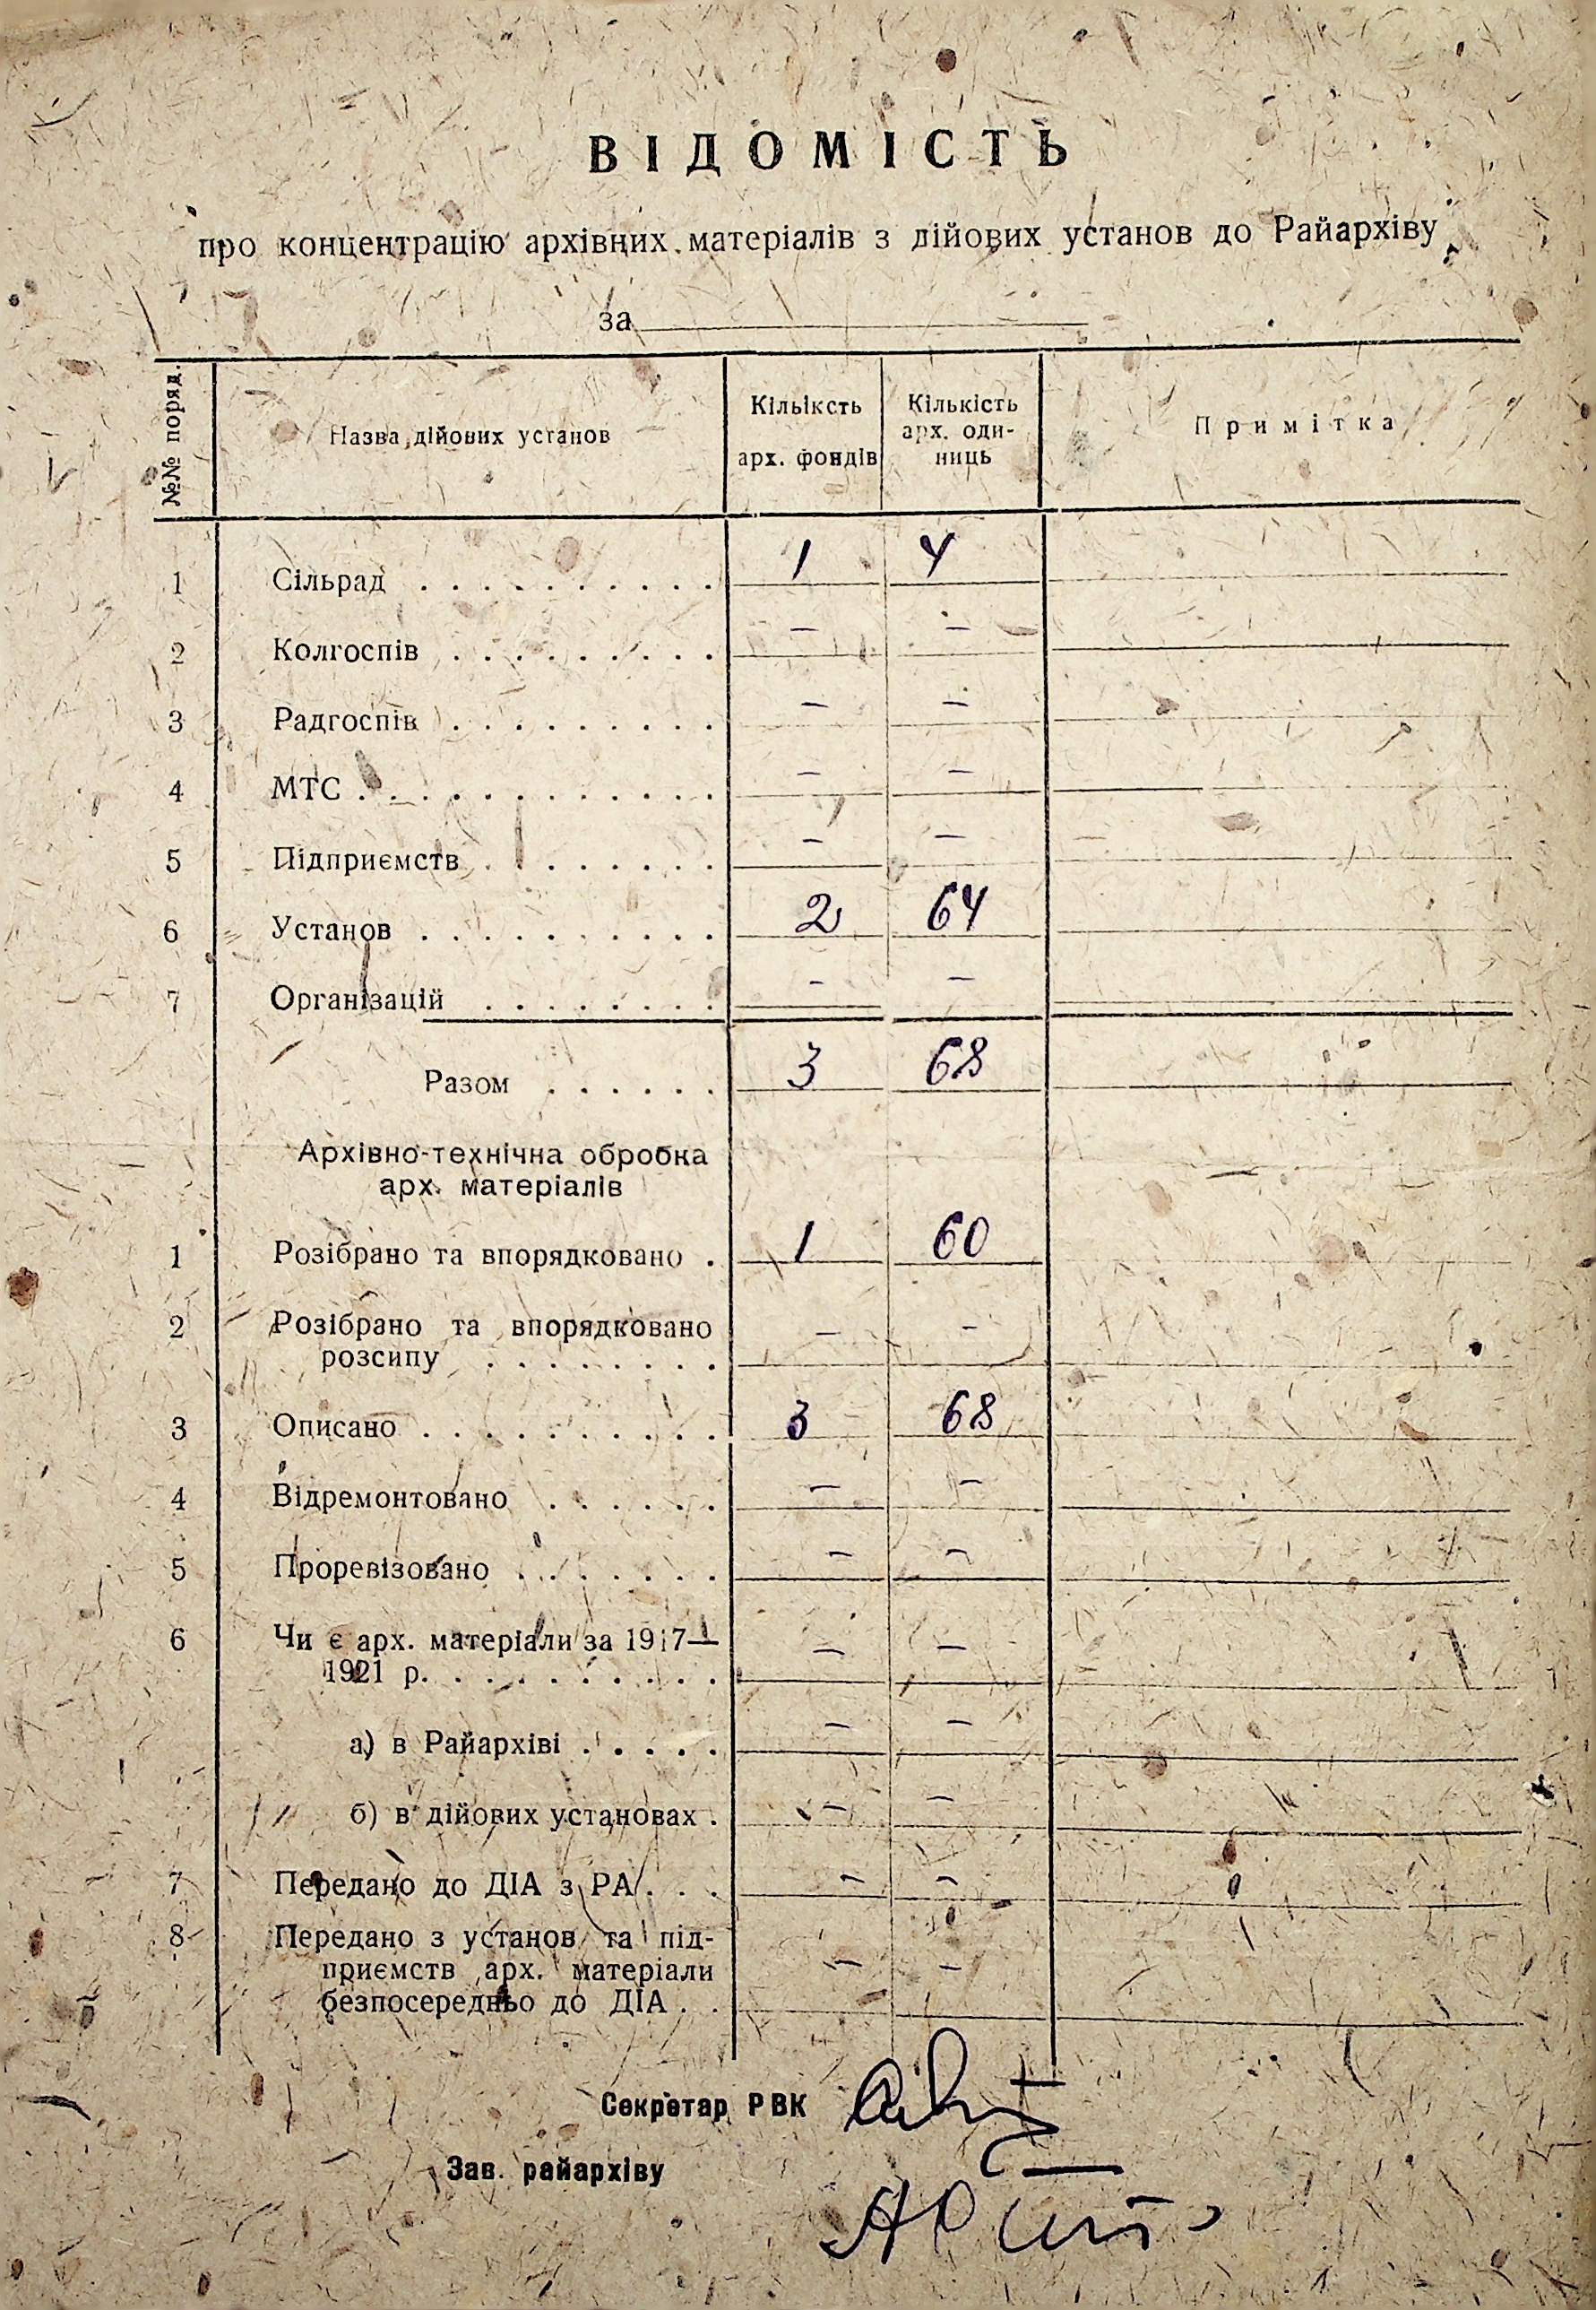 ВІДОМІСТЬ
про концентрацію архівних матеріалів з дійових установ до Райархіву
за
№№ поряд. Назва дійових установ Кільіксть арх. фондів Кількість арх. оди-ниць Примітка
1 Сільрад . . . . . . . . . . 1 4
2 Колгоспів . . . . . . . . . — —
3 Радгоспів . . . . . . . . . — —
4 МТС . . . . . . . . . . . . — —
5 Підприємств . . . . . . . . — —
6 Установ . . . . . . . . . . 2 64
7 Організацій . . . . . . . . - —
Разом . . . . . . 3 68
Архівно-технічна обробка
арх. матеріалів
1 Розібрано та впорядковано . 1 60
2 Розібрано та впорядковано
розсипу . . . . . . . . — -
3 Описано . . . . . . . . . . 3 68
4 Відремонтовано . . . . . . — —
5 Проревізовано . . . . . . . — —
6 Чи є арх. матеріали за 1917—
1921 р. . . . . . . . . . . — —
а) в Райархіві . . . . . — —
б) в дійових установах . — —
7 Передано до ДІА з РА . . . — —
8 Передано з установ та під-
приємств арх. матеріали
безпосередньо до ДІА . . — —
Секретар РВК
Зав. райархіву